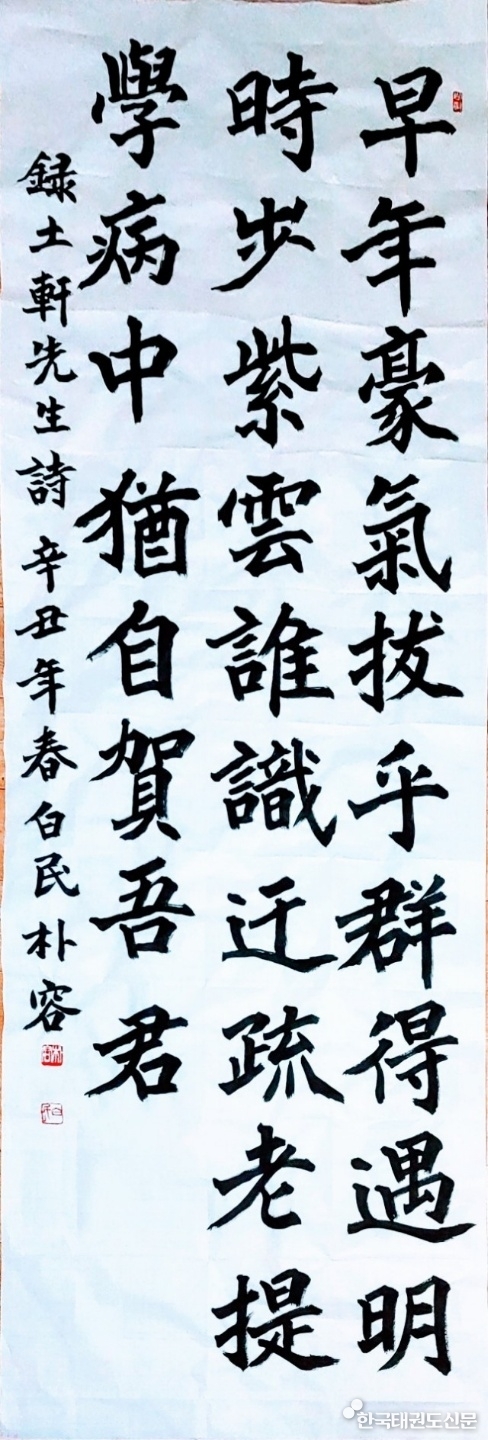 早年豪氣拔乎群得遇明
時步紫雲誰識迂疏老提
學病中猶自賀吾君
録土軒先生詩 辛丑年春 白民 朴容
한국태권도신문